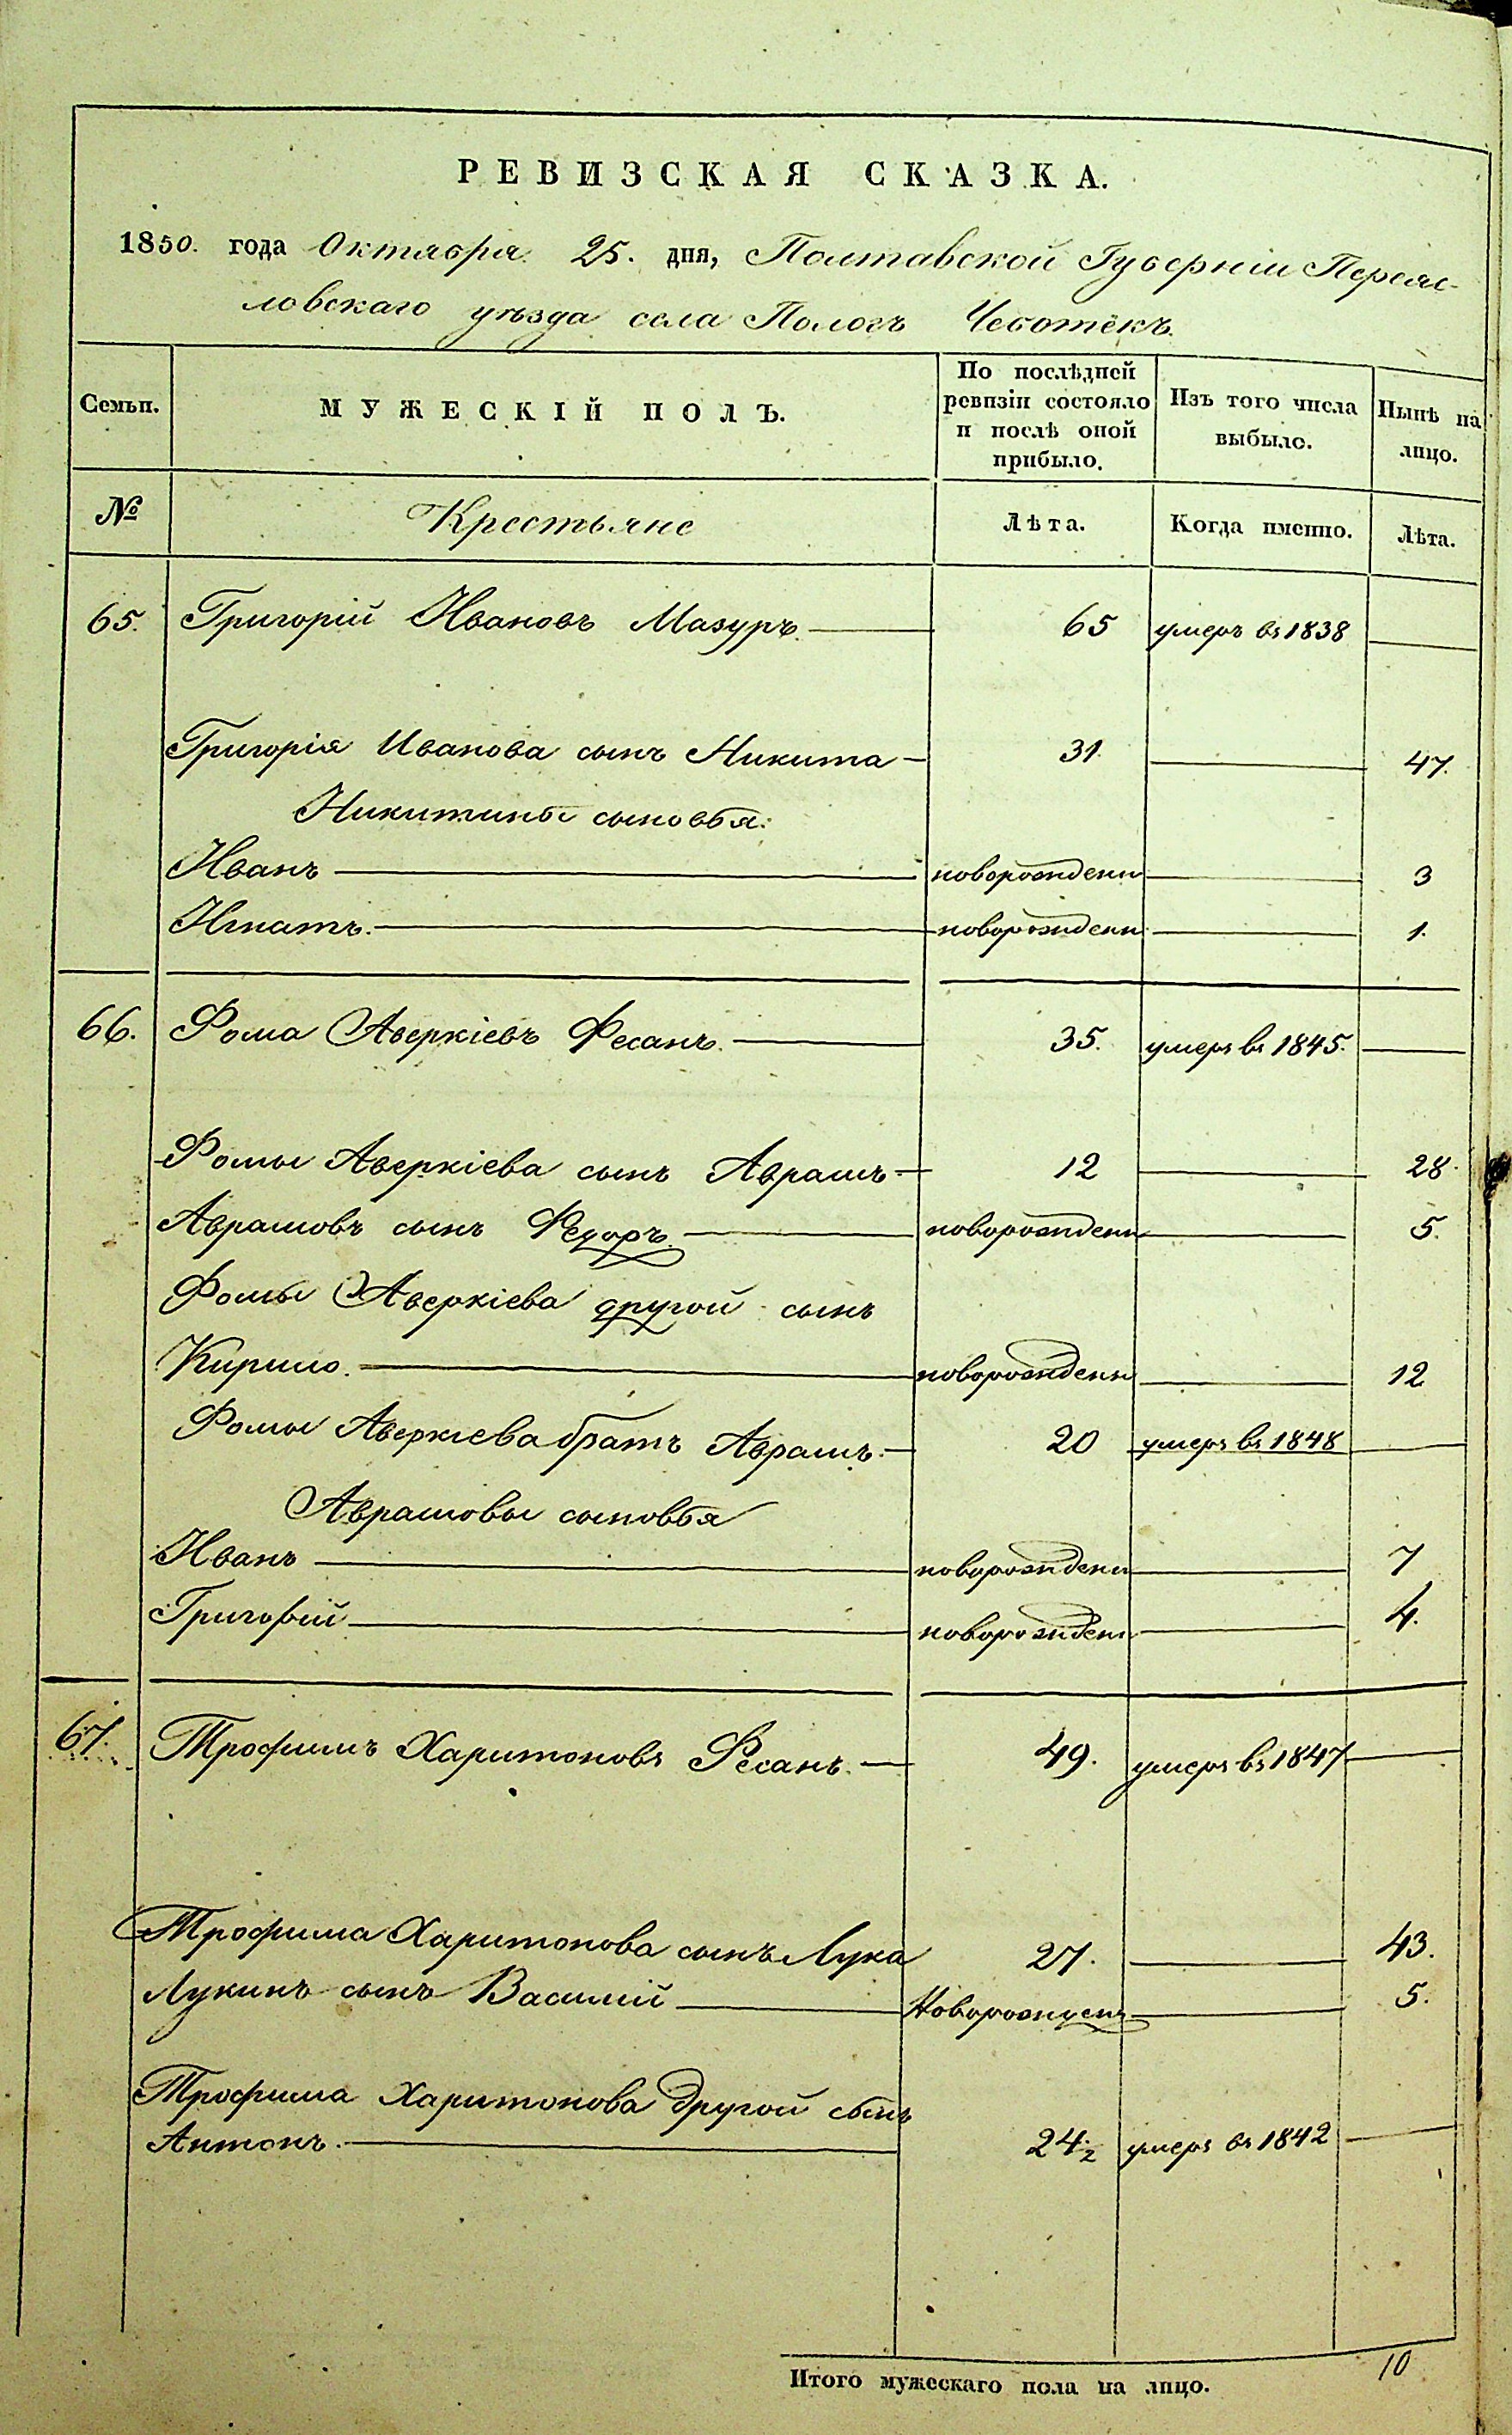 РЕВИЗСКАЯ СКАЗКА.
1850. года Октября 25. дня, Полтавской Губерніи Переяс-
ловскаго уѣзда села Пологъ Чеботёкъ.
Семьи.
МУЖЕСКІЙ ПОЛЪ.
По послѣдней
ревизіи состояло
и послѣ оной
прибыло.
Изъ того числа
выбыло.
Нынѣ на
лицо.
№ Крестьяне Лѣта. Когда именно. Лѣта.
65. Григорій Ивановъ Мазуръ 65 умеръ въ 1838
Григорія Иванова сынъ Никита 31 47.
Никитины сыновья:
Иванъ новорожденн 3
Игнатъ. новорожденн 1.
66. Фома Аверкіевъ Фесанъ. 35. умеръ въ 1845.
Фомы Аверкіева сынъ Аврамъ 12 28.
Аврамовъ сынъ Федоръ. новорожденн 5.
Фомы Аверкіева другой сынъ
Кирило. новорожденн 12
Фомы Аверкіева братъ Аврамъ. 20 умеръ въ 1848
Аврамовы сыновья
Иванъ новорожденн 7
Григорій новорожденн 4.
67. Трофимъ Харитоновъ Фесанъ. 49. умеръ въ 1847
Трофима Харитонова сынъ Лука 27. 43.
Лукинъ сынъ Василій Новорожденъ 5.
Трофима Харитонова другой сынъ
Антонъ. 24½ умеръ въ 1842
Итого мужескаго пола на лицо. 10